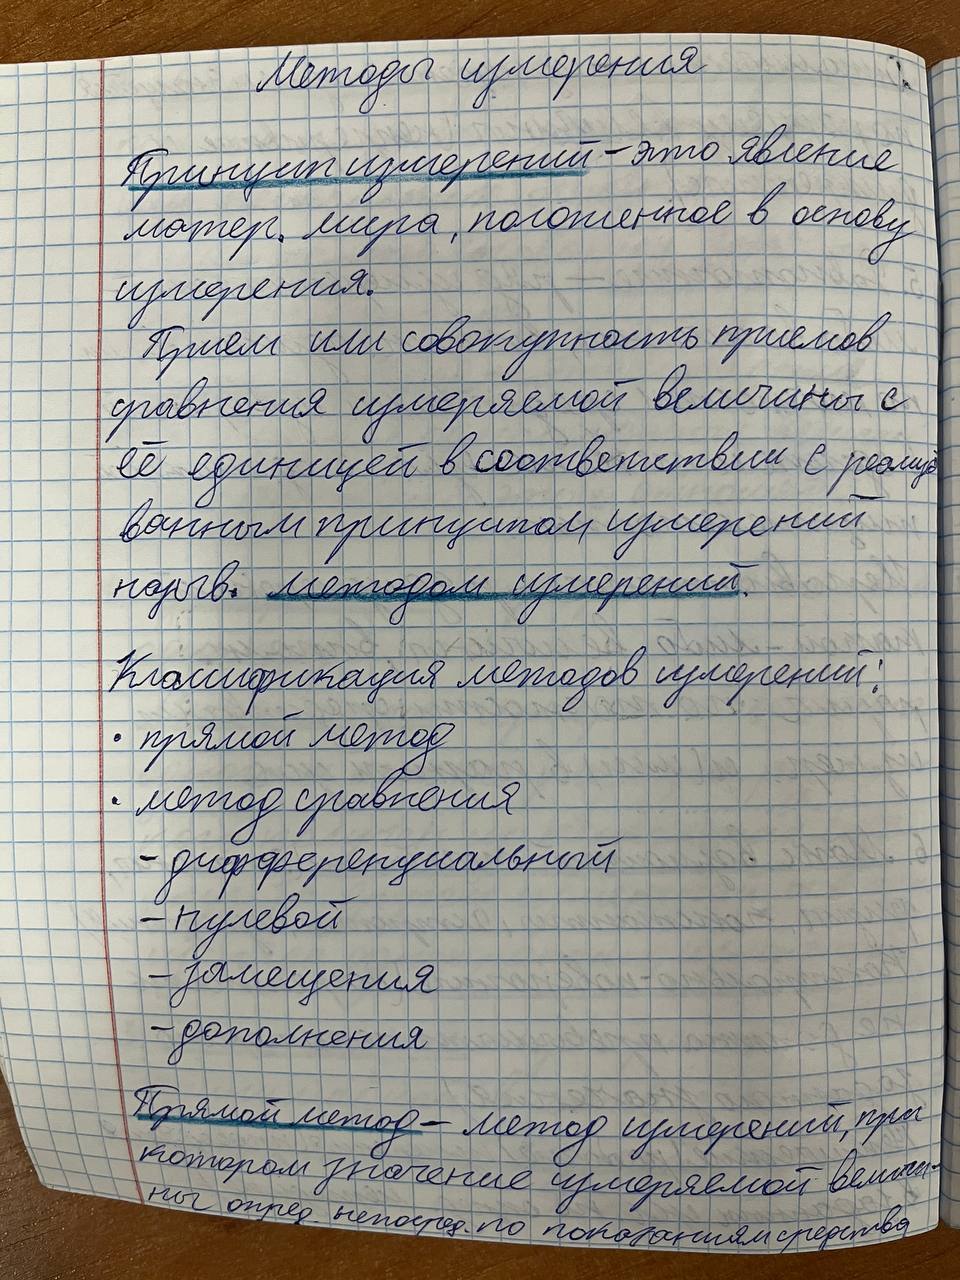 Методы измерения
Принцип измерений – это явление
матер. мира, положенное в основу
измерения.
Прием или совокупность приемов
сравнения измеряемой величины с
её единицей в соответствии с реализо
ванным принципом измерений
назыв. методом измерений.
Классификация методов измерений:
• прямой метод
• метод сравнения
- дифференциальный
- нулевой
- замещения
- дополнения
Прямой метод – метод измерений, при
котором значение измеряемой величи-
ны опред. непосред. по показаниям средства